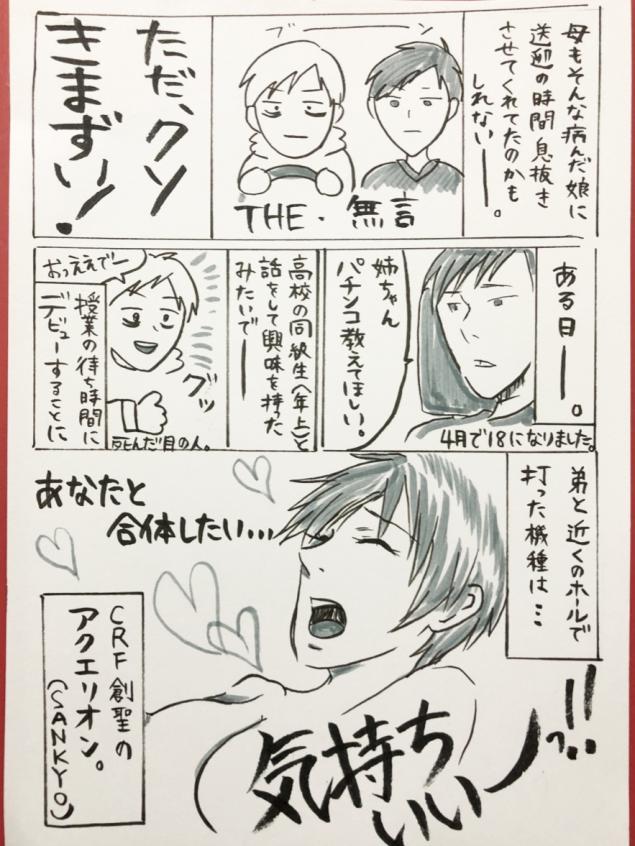 母もそんな病んだ娘に
送迎の時間息抜き
させてくれてたのかも
しれない―――。
ブーーーン
THE・無言
ただ、クソ
きまずい!
ある日―――。
4月で18になりました。
姉ちゃん
パチンコ教えてほしい。
高校の同級生(年上)と
話をして興味を持った
みたいで―――
おっええでー
グッ
死んだ目の人。
授業の待ち時間に
デビューすることに
弟と近くのホールで
打った機種は…
あなたと
合体したい…
CRF創聖の
アクエリオン。
(SANKYO)
気持ち
いいーッ…!!